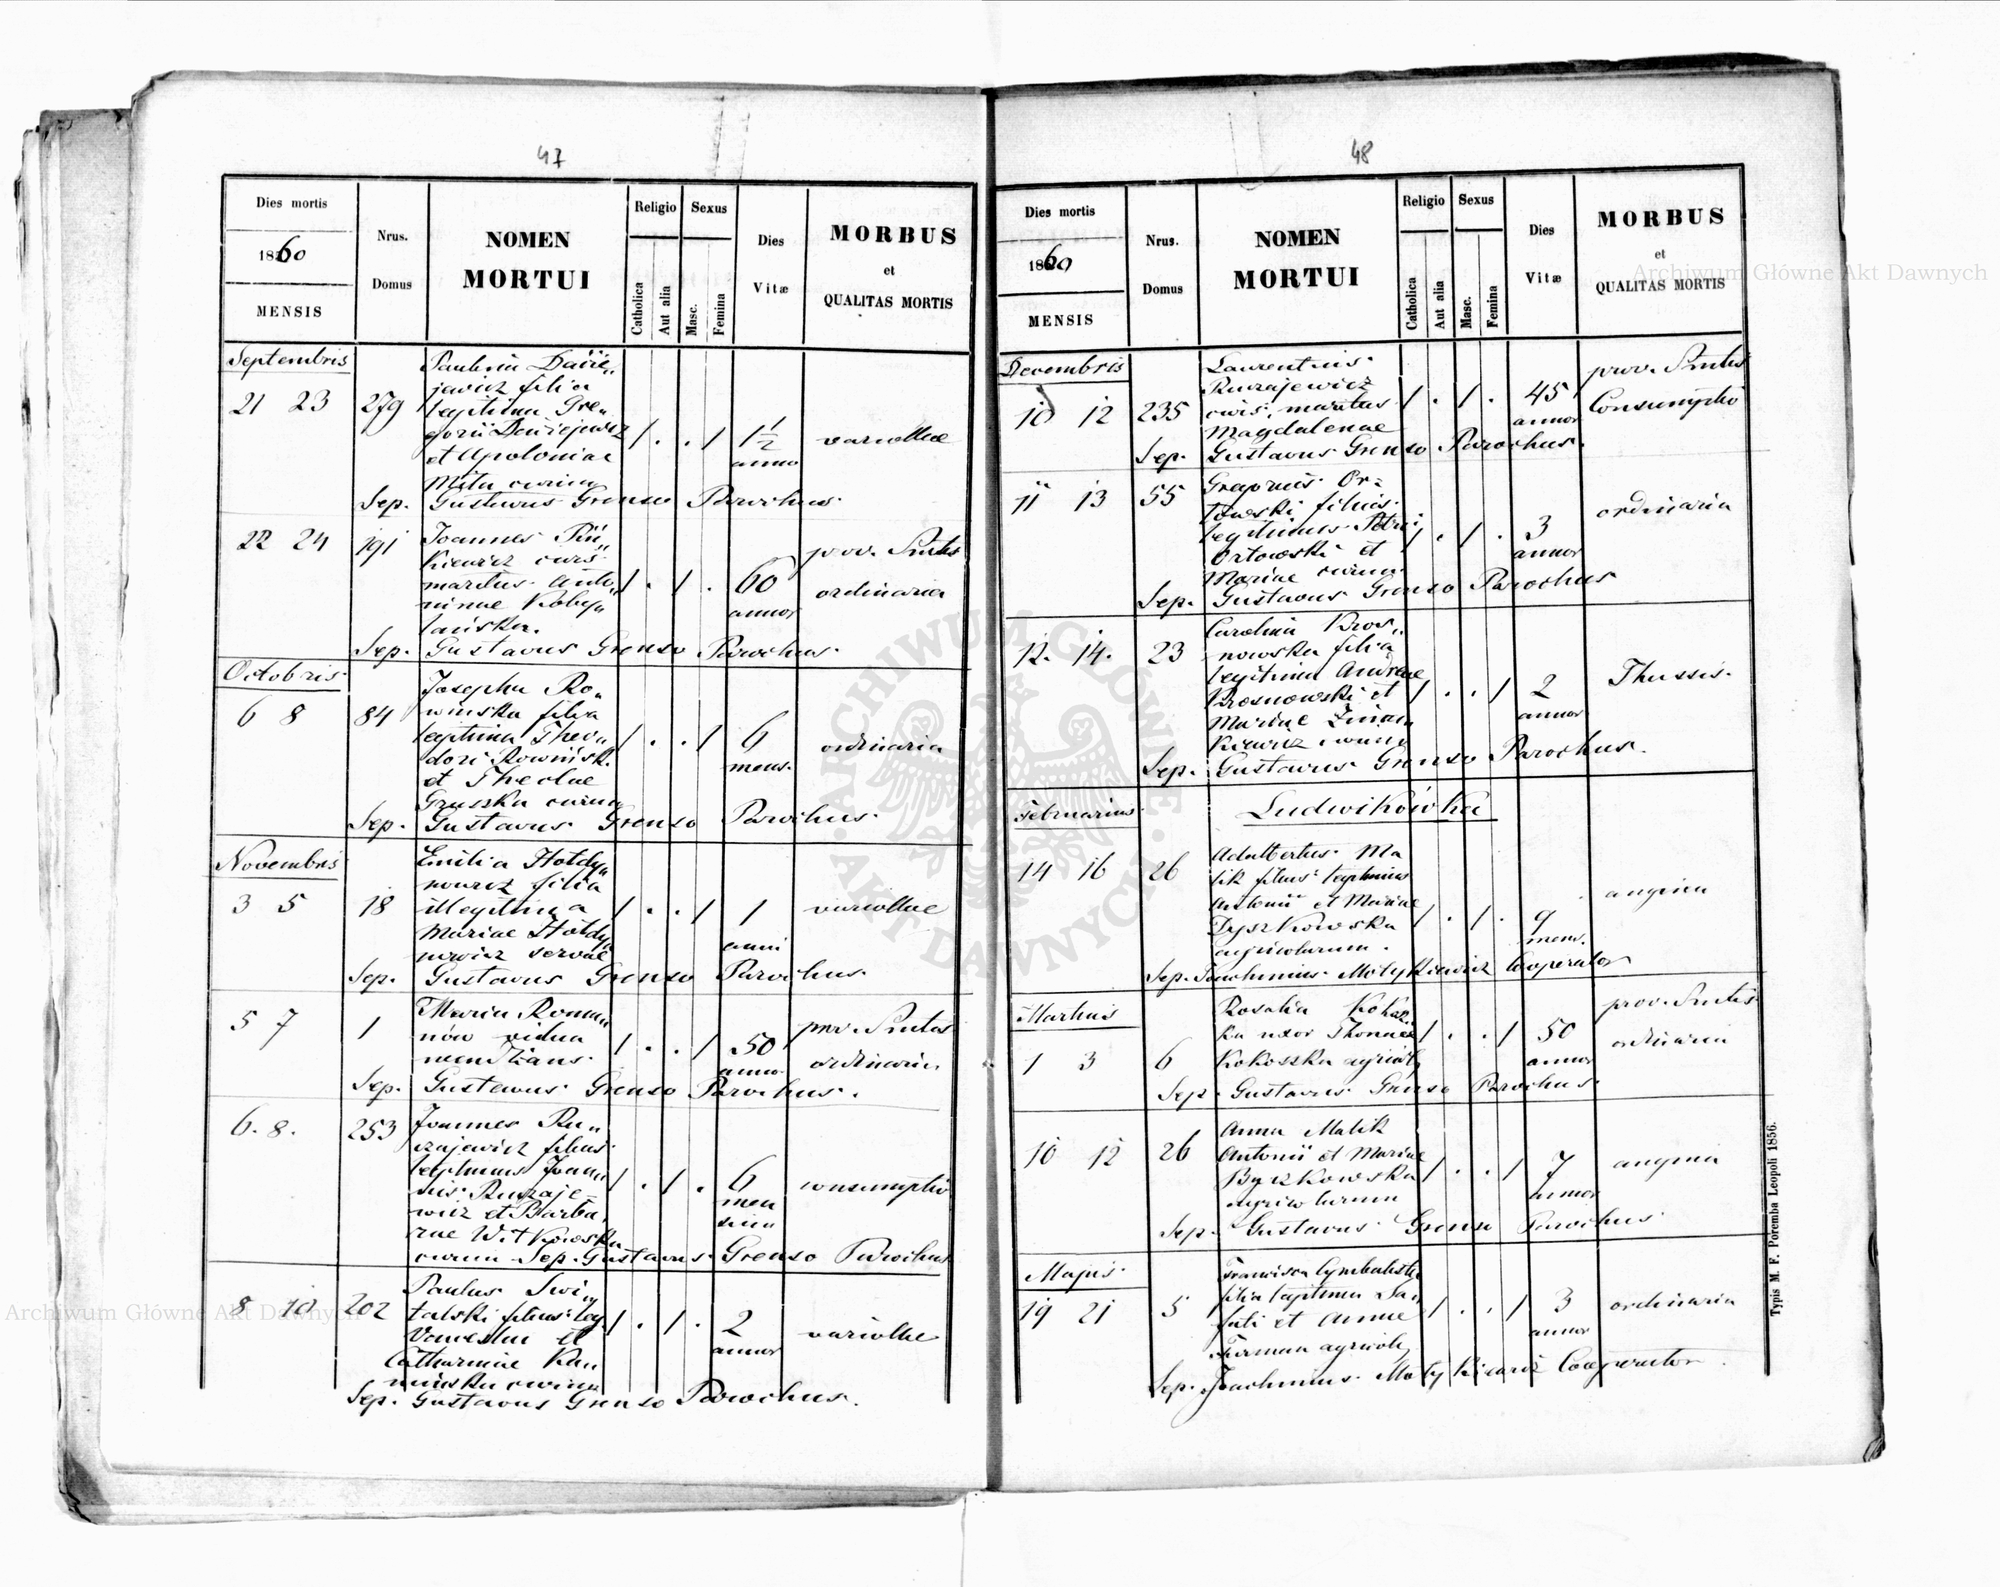 47
Dies mortis
1860
MENSIS
Nrus.
Domus
NOMEN
MORTUI
Religio
Catholica
Aut alia
Sexus
Masc.
Femina
Dies
Vitæ
MORBUS
et
QUALITAS MORTIS
Septembris
21 23 279
Paulina
jewicz filia
legitima Gre„
gorii
et Apoloniae
civium
1 . . 1
1 1/2
anno
variollae
Sep. Gustavus Grenso Parochus.
22 24 191
Joannes Piń„
kiewicz civis
maritus Anto„
ninae Koby„
lańska.
1 . 1 .
60
annor
prov. Smtis
ordinaria
Sep. Gustavus Grenso Parochus.
Octobris
6 8 84
Josepha Ro„
wińska filia
legitima Theo„
dori Rowińsk.
et Theclae
Gruszka civium
1 . . 1
6
mens.
ordinaria
Sep. Gustavus Grenso Parochus.
Novembris
3 5 18
Emilia Hołdy„
nowicz filia
illegitima
Mariae Hołdy„
nowicz servae
1 . . 1
1
anni
variollae
Sep. Gustavus Grenso Parochus.
5 7 1
Maria Roma„
nów vidua
mendicans
1 . . 1
50
annor
prov. Smtis
ordinaria
Sep. Gustavus Grenso Parochus.
6. 8. 253
Joannes Ru„
szajewicz filius
legitimus Joan„
nis Ruszaje„
wicz et Barba„
rae Witkowska
civium - Sep. Gustavus Grenso Parochus
1 . 1 .
6
men
sium
consumptio
8 10 202
Paulus Świ„
talski filius leg.
et
Catharinae Ka„
mińska civium
1 . 1 .
2
annor
variollae
Sep. Gustavus Grenso Parochus.
48
Dies mortis
1860
MENSIS
Nrus.
Domus
NOMEN
MORTUI
Religio
Catholica
Aut alia
Sexus
Masc.
Femina
Dies
Vitæ
MORBUS
et
QUALITAS MORTIS
Decembris
10 12 235
Laurentius
Ruszajewicz
civis, maritus
Magdalenae
1 . 1 .
45
annor
prov. Smtis
Consumptio
Sep. Gustavus Grenso Parochus.
11 13 55
Gregorius Or„
łowski filius
legitimus Petri
Orłowski et
Mariae civium
1 . 1 .
3
annor
ordinaria
Sep. Gustavus Grenso Parochus
12. 14. 23
Carolina Bros„
nowska filia
legitima Andreae
Brosnowski et
Mariae
kiewicz civium
1 . . 1
2
annor
Thussis.
Sep. Gustavus Grenso Parochus.
Februarius
Ludwikówka
14 16 26
Adalbertus Ma
lik filius legitimus
Antonii et Mariae
Dyszkowska
agricolarum.
1 . 1 .
9
mens.
angina
Sep. Joachimus Motykiewicz Cooperator
Martius
1 3 6
Rosalia Kokosz„
ka uxor Thomae
Kokoszka agricol.
1 . . 1
50
annor
prov. Smtis
ordinaria
Sep. Gustavus Grenso Parochus.
10 12 26
Anna Malik
Antonii et Mariae
Byszkowska
agricolarum
1 . . 1
7
annor
angina
Sep. Gustavus Grenso Parochus
Majus
19 21 5
Francisca Cymbalista
filia legitima Ja„
et Annae
Furman agricol.
1 . . 1
3
annor
ordinaria
Sep. Joachimus Motykiewicz Cooperator.
Typis M. F. Poremba Leopoli 1856.
Archiwum Główne Akt Dawnych
Archiwum Główne Akt Dawnych
ARCHIWUM GŁÓWNE
AKT DAWNYCH